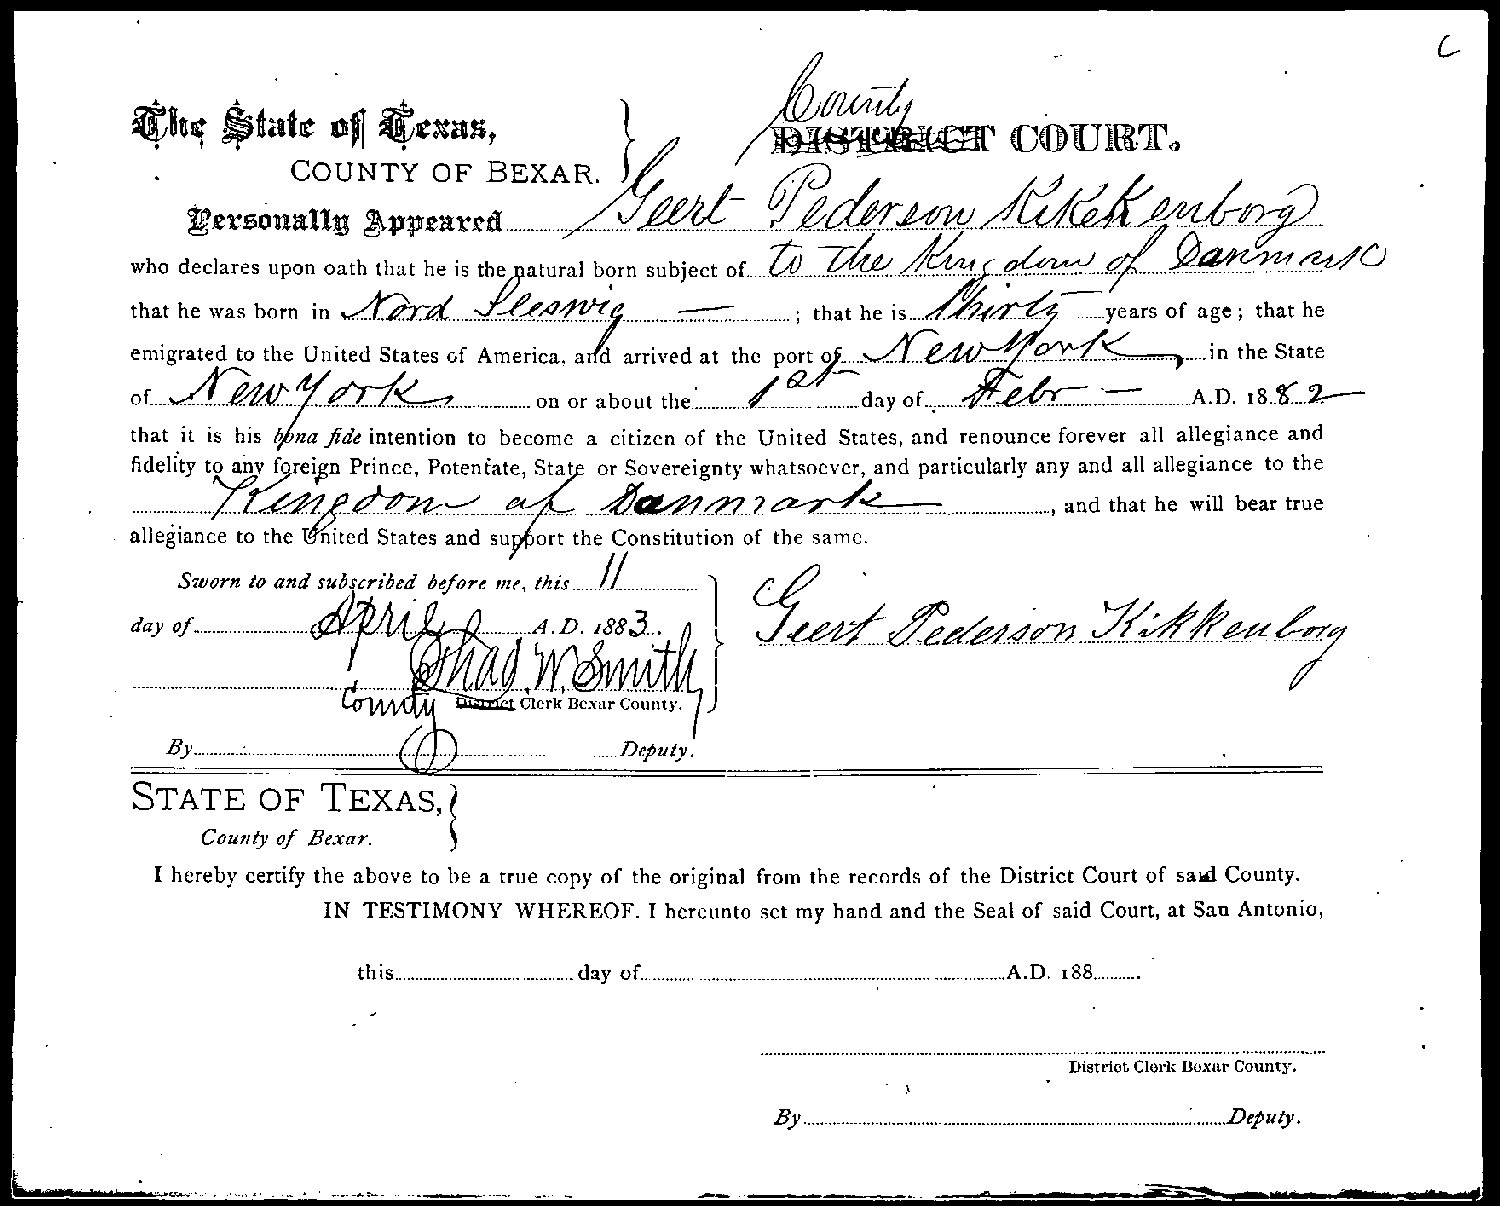 C
County
The State of Texas, DISTRICT COURT.
COUNTY OF BEXAR.
Personally Appeared Geert Pederson Kikkenborg
who declares upon oath that he is the natural born subject of to the Kingdom of Danmark
that he was born in Nord Sleswig — ; that he is Thirty years of age; that he
emigrated to the United States of America, and arrived at the port of New York, in the State
of New York on or about the 1st day of Febr — A.D. 1882
that it is his bona fide intention to become a citizen of the United States, and renounce forever all allegiance and
fidelity to any foreign Prince, Potentate, State or Sovereignty whatsoever, and particularly any and all allegiance to the
Kingdom of Danmark , and that he will bear true
allegiance to the United States and support the Constitution of the same.
Sworn to and subscribed before me, this 11
day of April A.D. 1883.
Geert Pederson Kikkenborg
Thad. W. Smith
County District Clerk Bexar County.
By Deputy.
STATE OF TEXAS,
County of Bexar.
I hereby certify the above to be a true copy of the original from the records of the District Court of said County.
IN TESTIMONY WHEREOF. I hereunto set my hand and the Seal of said Court, at San Antonio,
this day of A.D. 188
District Clerk Bexar County.
By Deputy.